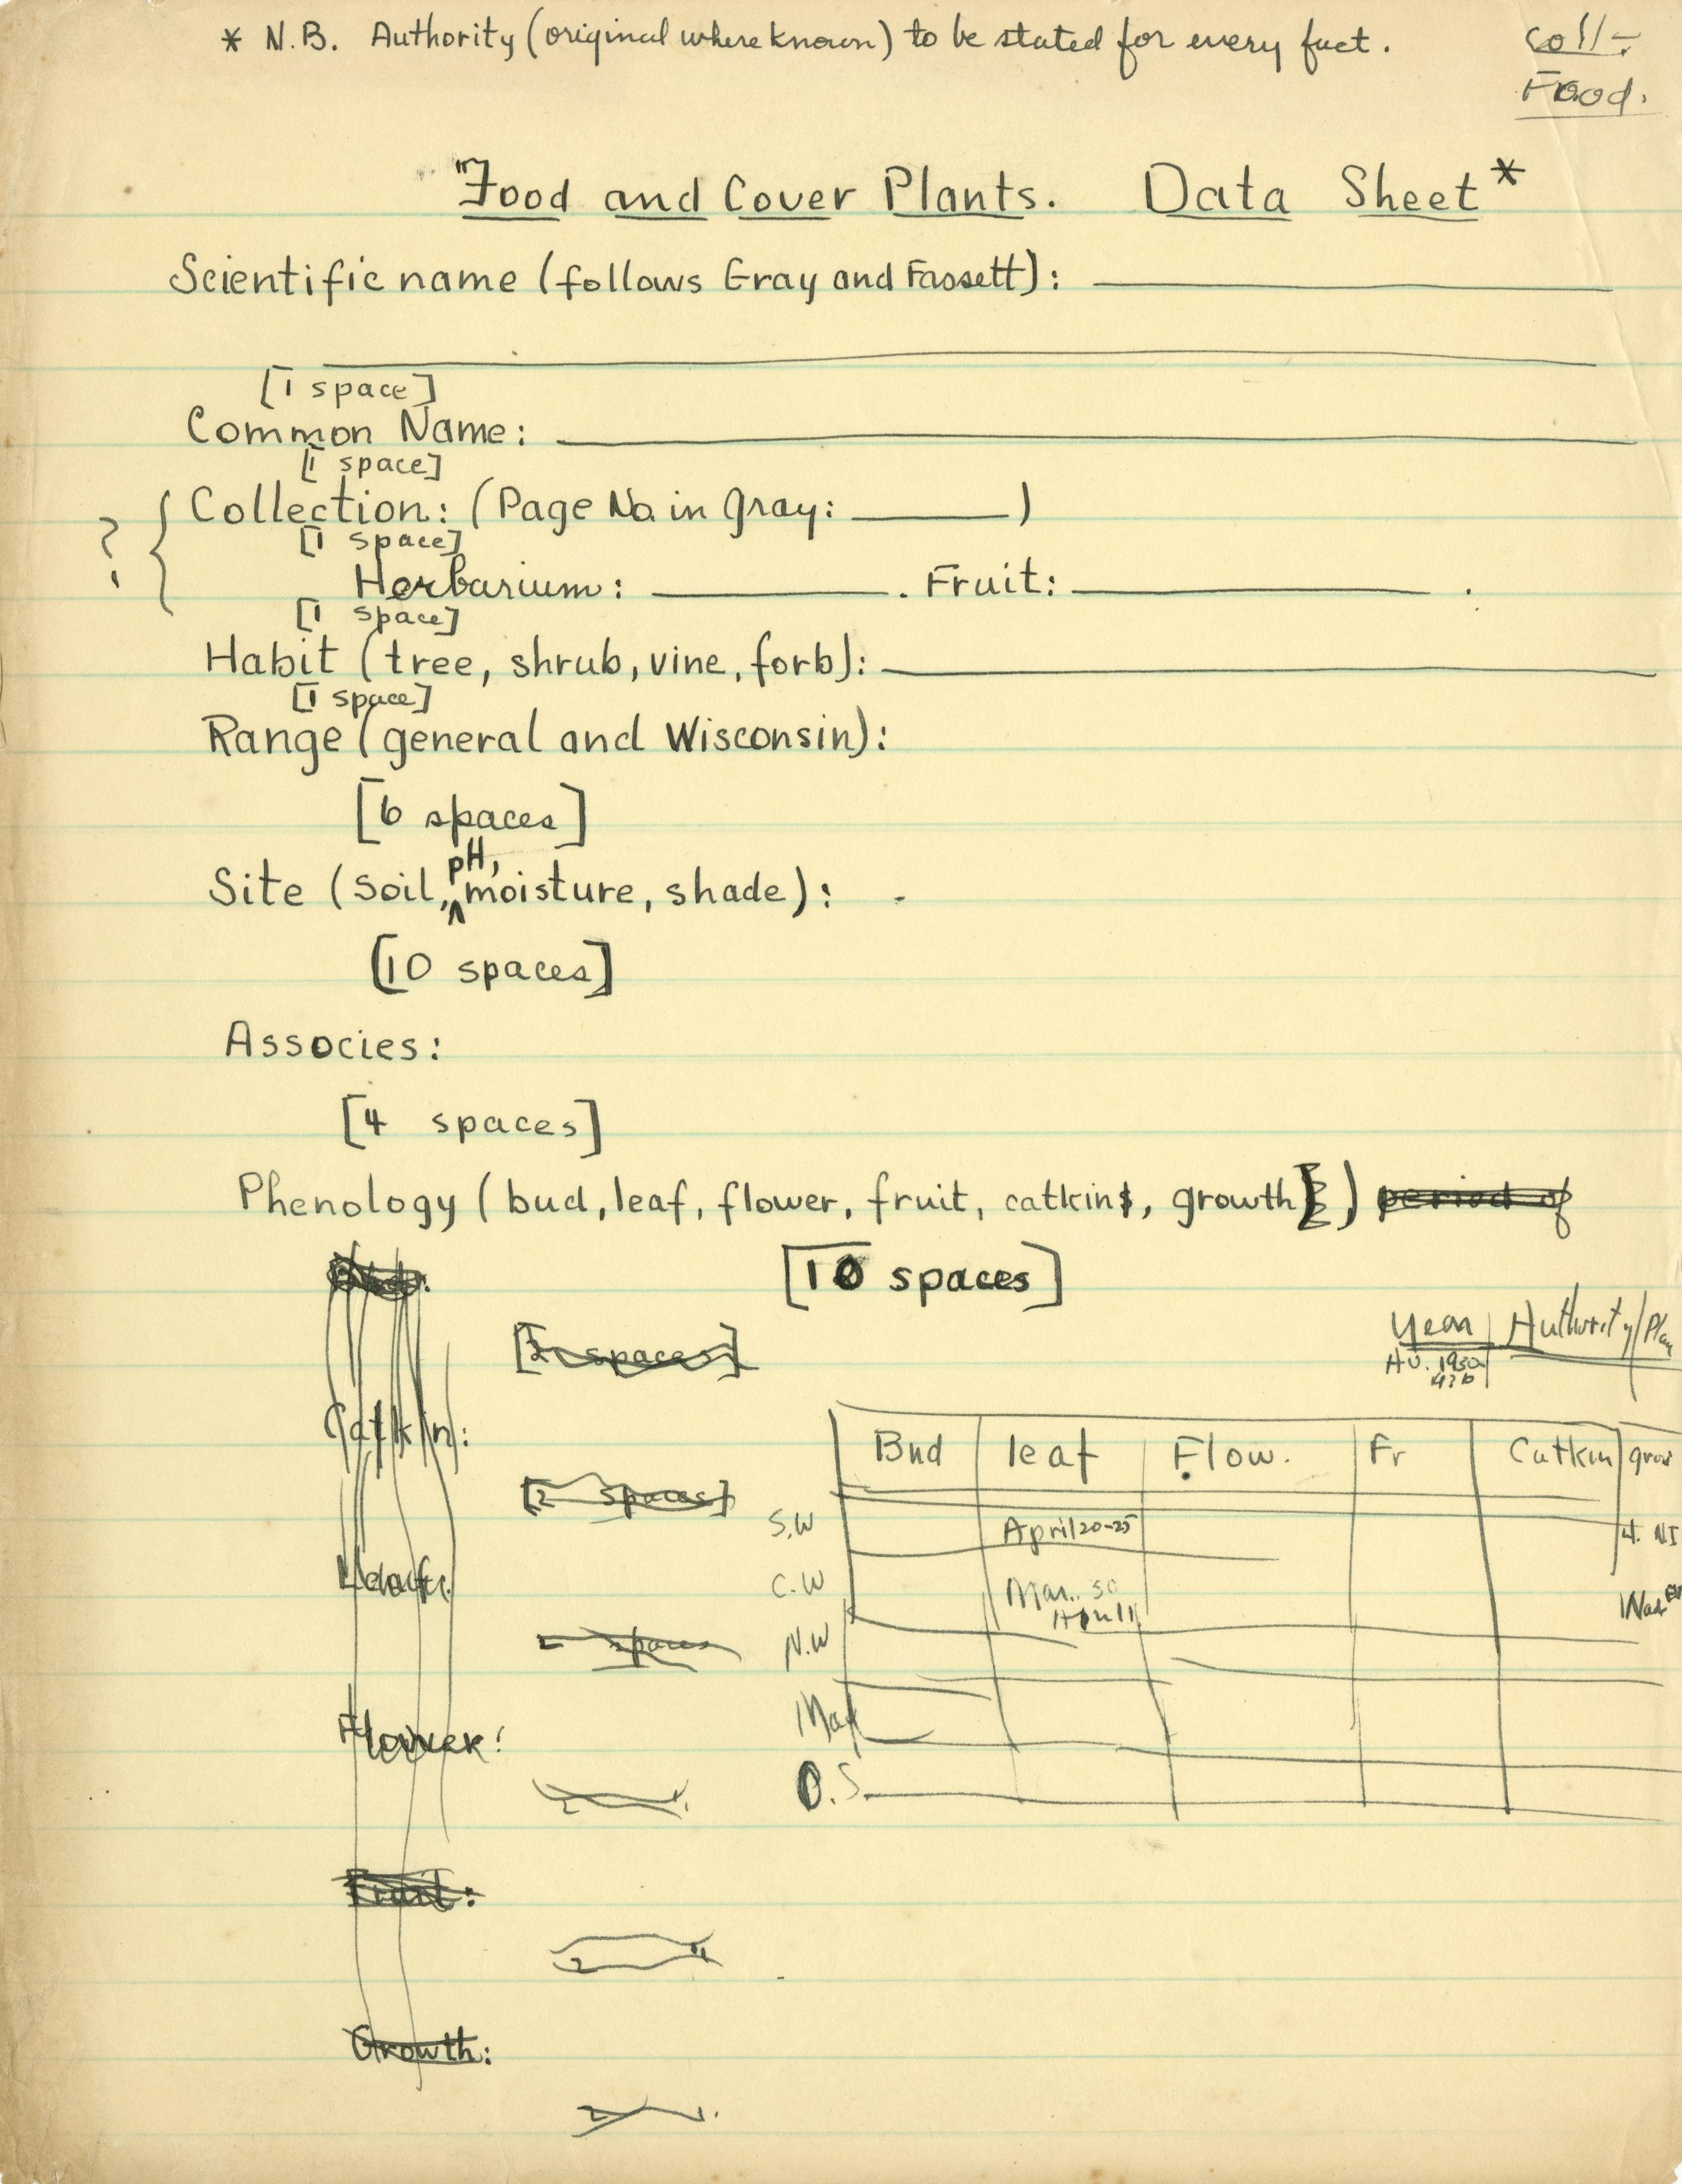 * N.B. Authority (original where known) to be stated for every fact.
Coll-
Food.
"Food and Cover Plants. Data Sheet*
Scientific name (follows Gray and Fassett):
[1 space]
Common Name:
[1 space]
Collection: (Page No. in Gray: )
[1 space]
?
Herbarium: . Fruit: .
[1 space]
Habit (tree, shrub, vine, forb):
[1 space]
Range (general and Wisconsin):
[6 spaces]
pH,
Site (soil, moisture, shade):
[10 spaces]
Associes:
[4 spaces]
Phenology (bud, leaf, flower, fruit, catkins, growth) period of
[10 spaces]
Year Authority
1930
[2 spaces]
Catkin:
Bud leaf Flow. Fr Catkin grow
[2 spaces]
S.W April 20-25
Leaf:
C.W Mar. 30
2 spaces
N.W
Flower:
Mad
2
O.S.
Fruit:
2 "
Growth:
2